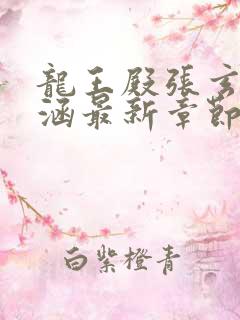 龍王殿張玄
涵最新章節
白紫橙青